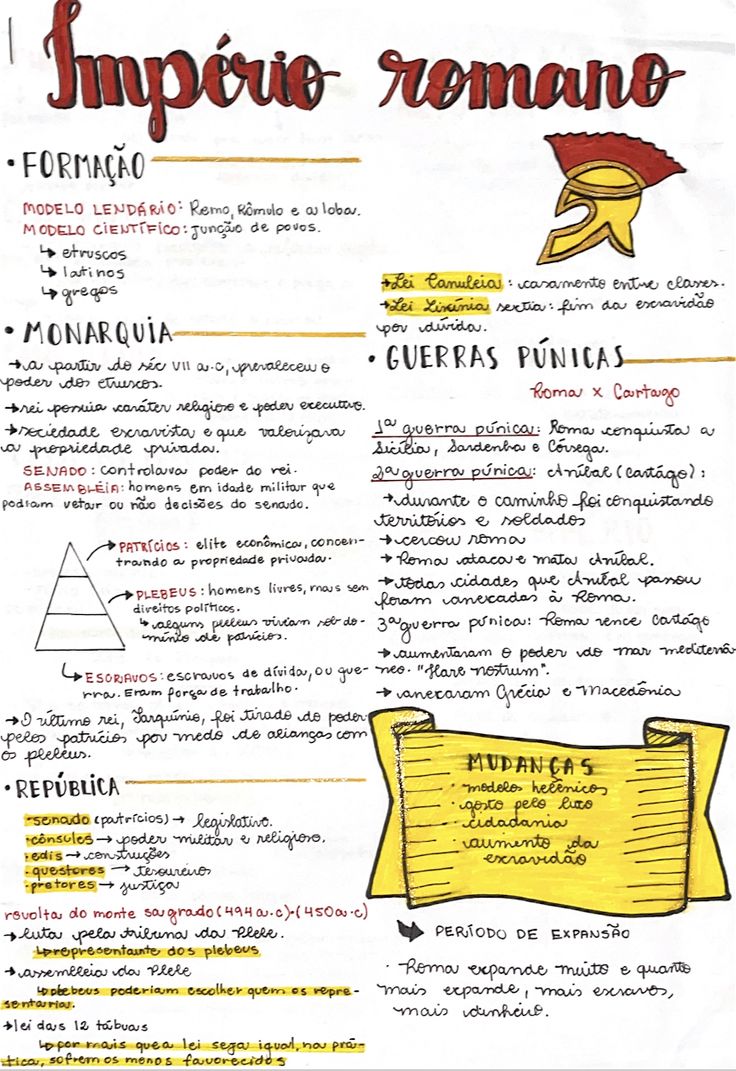 Império romano
• FORMAÇÃO
MODELO LENDÁRIO: Remo, Rômulo e a loba.
MODELO CIENTÍFICO: junção de povos.
↳ etruscos
↳ latinos
↳ gregos
• MONARQUIA
→ a partir do séc VII a.c, prevaleceu o
poder dos etruscos.
→ rei possuia caráter religioso e poder executivo.
→ sociedade escravista e que valorizava
a propriedade privada.
SENADO: controlava poder do rei.
ASSEMBLÉIA: homens em idade militar que
podiam vetar ou não decisões do senado.
→ PATRÍCIOS: elite econômica, concen-
trando a propriedade privada.
→ PLEBEUS: homens livres, mas sem
direitos políticos.
↳ alguns plebeus viviam sob do-
mínio de patrícios.
↳ ESCRAVOS: escravos de dívida, ou gue-
rra. Eram força de trabalho.
→ O último rei, Tarquínio, foi tirado do poder
pelos patrícios por medo de alianças com
os plebeus.
• REPÚBLICA
• senado (patrícios) → legislativo.
• cônsules → poder militar e religioso.
• edis → construções
• questores → tesoureiros
• pretores → justiça
revolta do monte sagrado (494 a.c) • (450 a.c)
→ luta pela tribuna da Plebe.
↳ representante dos plebeus
→ assembleia da Plebe
↳ plebeus poderiam escolher quem os repre-
sentaria.
→ lei das 12 tábuas
↳ por mais que a lei seja igual, na prá-
tica, sofrem os menos favorecidos
→ Lei Canuleia: casamento entre classes.
→ Lei Licínia sextia: fim da escravidão
por dívida.
• GUERRAS PÚNICAS
Roma x Cartago
1ª guerra púnica: Roma conquista a
Sicília, Sardenha e Córsega.
2ª guerra púnica: Aníbal (Cartágo):
→ durante o caminho foi conquistando
territórios e soldados
→ cercou roma
→ Roma ataca e mata Aníbal.
→ todas cidades que Aníbal passou
foram anexadas à Roma.
3ª guerra púnica: Roma vence Cartágo
→ aumentaram o poder do mar mediterrâ-
neo. "Mare nostrum".
→ anexaram Grécia e Macedônia
MUDANÇAS
• modelos helênicos
• gosto pelo luxo
• cidadania
• aumento da
escravidão
PERÍODO DE EXPANSÃO
• Roma expande muito e quanto
mais expande, mais escravos,
mais dinheiro.